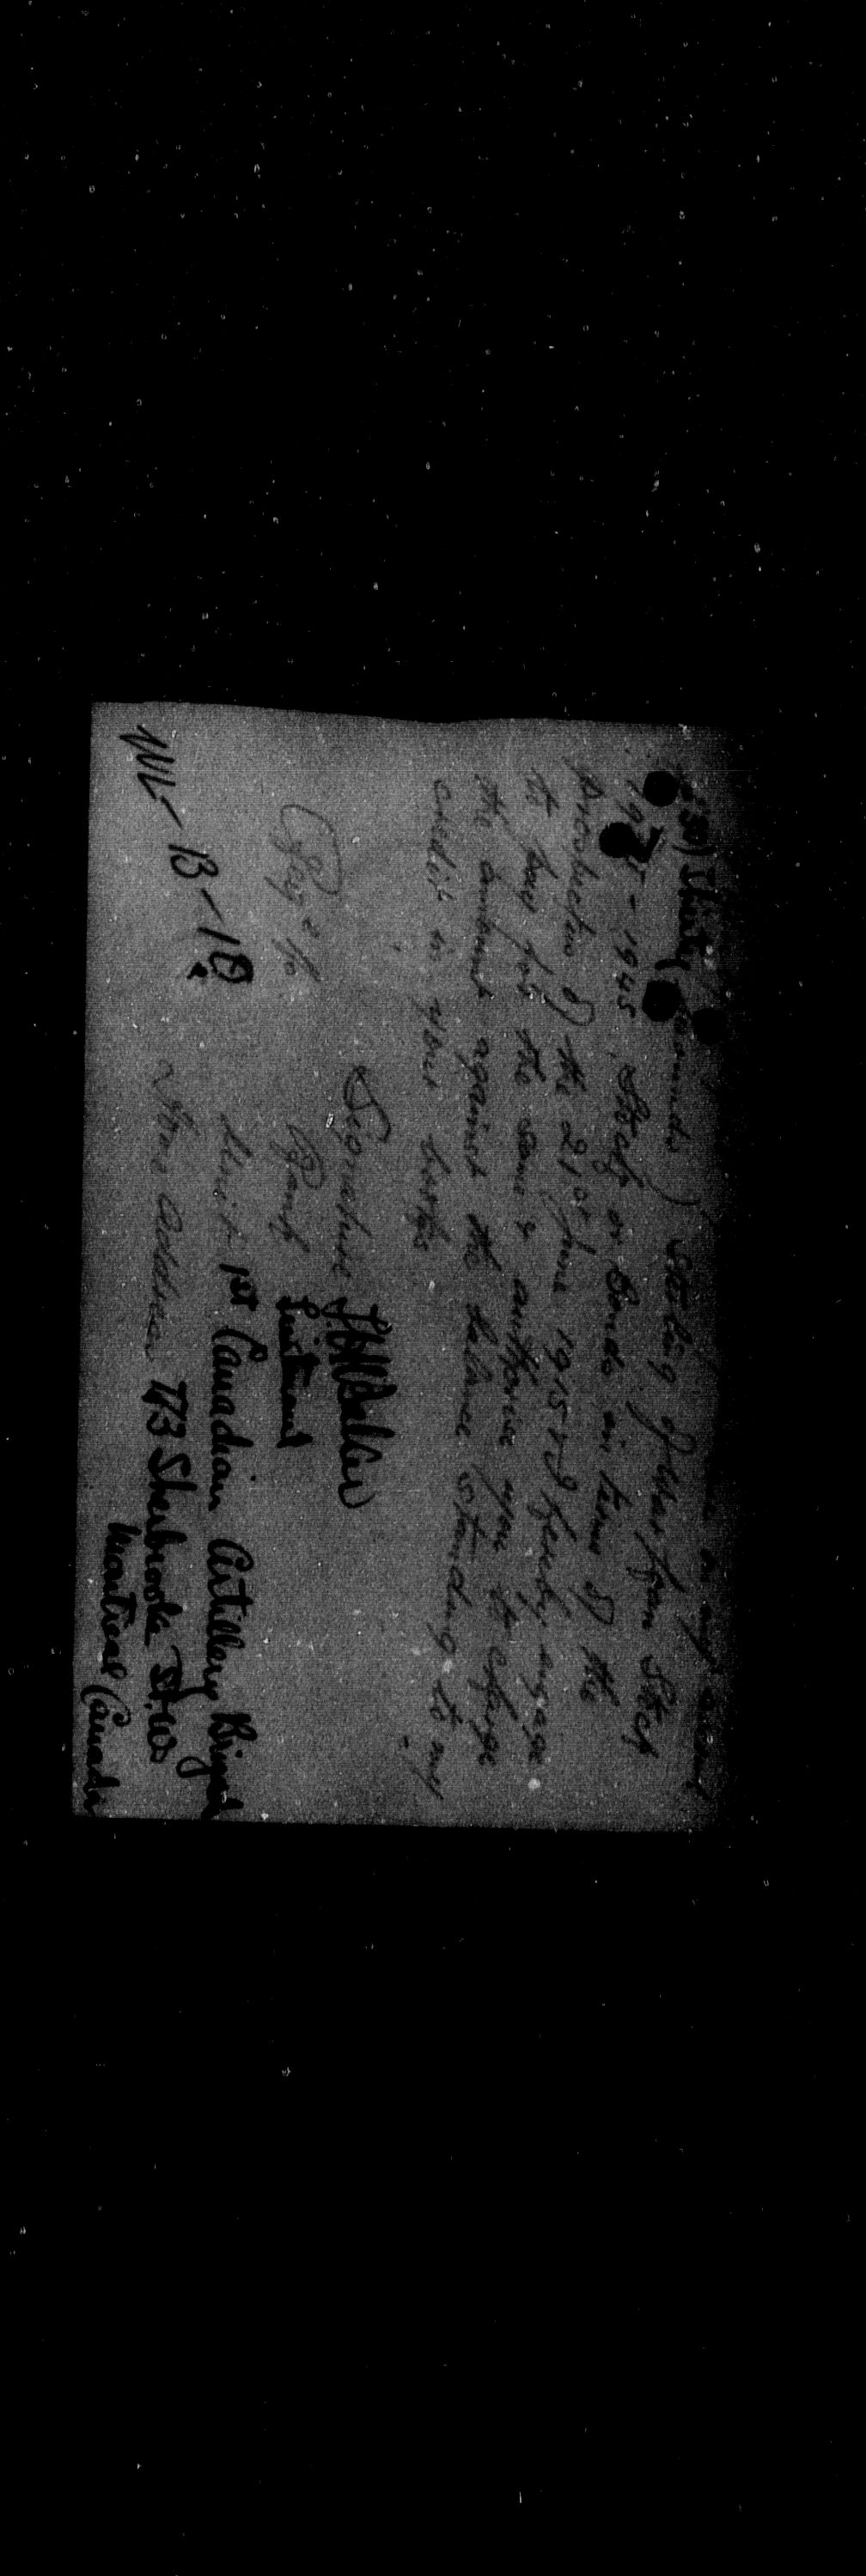 in my
£30 (thirty pounds) Sterling of War Loan Stock
1925 - 1945. Stock or Bonds in terms of the
prospectus of the 21st June 1915 & I hereby engage
to pay for the same & authorise you to charge
the amount against the balance standing to my
credit in your books
Signature
Rank Lieutenant
Unit 1st Canadian Artillery Brigade
Home Address 773 Sherbrooke St. W
Montreal Canada
WL-B-18